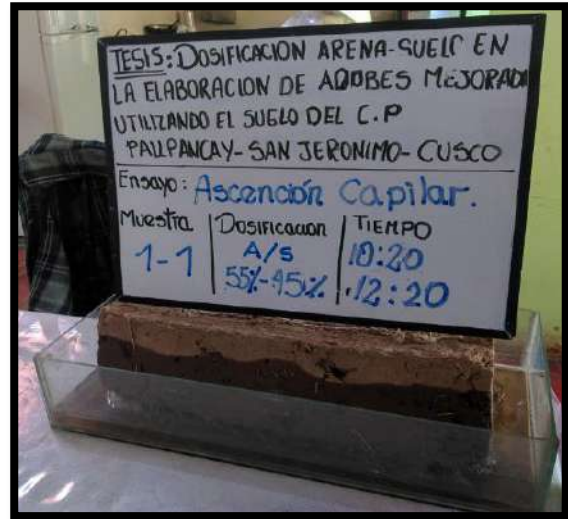 TESIS: DOSIFICACION ARENA-SUELO EN
LA ELABORACION DE ADOBES MEJORADO
UTILIZANDO EL SUELO DEL C.P
PALLPANCAY- SAN JERONIMO- CUSCO
Ensayo: Ascención Capilar.
Muestra Dosificacion TIEMPO
1-1 A/s 10:20
55%-45% 12:20